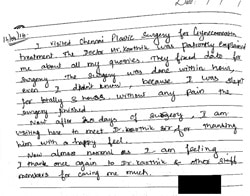 16/04/14
I visited Chennai Plastic Surgery for Gynecomastia
treatment. The Doctor Mr. Karthik was patiently explained
me about all my queries. They fixed date for
Surgery. The surgery was done within hours,
even I didn't know, because I was slept
for totally 3 hours without any pain the
surgery finished.
Now after two days of surgery, I am
visiting here to meet Dr. karthik sir for thanking
him with a happy feel.
Now almost normal as I am feeling
I thank once again to Dr. karthik & other staff
members for caring me much.